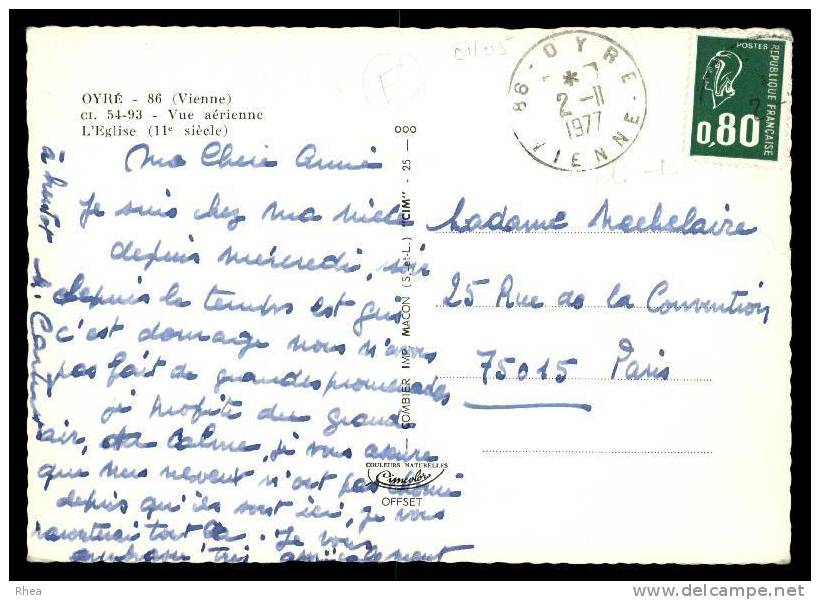 OYRÉ - 86 (Vienne)
CI. 54-93 - Vue aérienne
L'Eglise (11e siècle)
86 - OYRE - VIENNE
2-11
1977
POSTES
REPUBLIQUE FRANÇAISE
0,80
Ma Chère Annie
Je suis chez ma nièce
depuis mercredi, soir
depuis le temps est gris
c'est domage nous n'avons
pas fait de grandes promenades
je profite du grand
air, du calme, je vous assure
que mes neveux n'ont pas chomé
depuis qu'ils sont ici, je vous
raconterai tout ça. Je vous
embrasse très amicalement
à bientot
Madame
25 Rue de la Convention
75015 Paris
COMBIER IMP. MACON (S.-et-L.) "CIM" - 25 -
COULEURS NATURELLES
Cimcolor
OFFSET
Rhea
www.delcampe.net